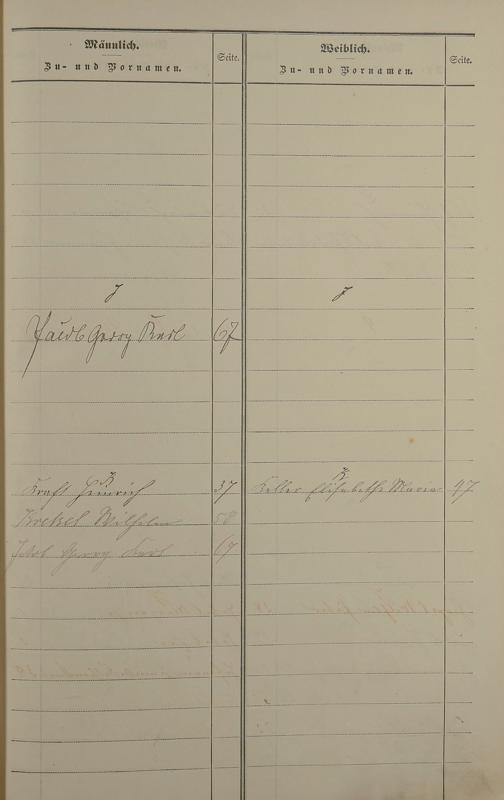 Männlich.
Zu- und Vornamen.
Seite.
Weiblich.
Zu- und Vornamen.
Seite.
J
J
Jacob Georg Karl 67
K
K
Kraft Heinrich 37
Keller Elisabetha Maria 47
Krekel Wilhelm 58
Jakob Georg Karl 67